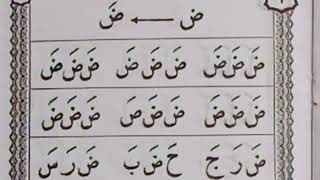 ض ← ضَ
ضَ ضَ ضَ ضَ ضَ ضَ ضَ ضَ ضَ
ضَ ضَ ضَ ضَ ضَ صَ ضَ ضَ ضَ
ضَ رَ جَ حَ ضَ بَ ضَ رَ سَ